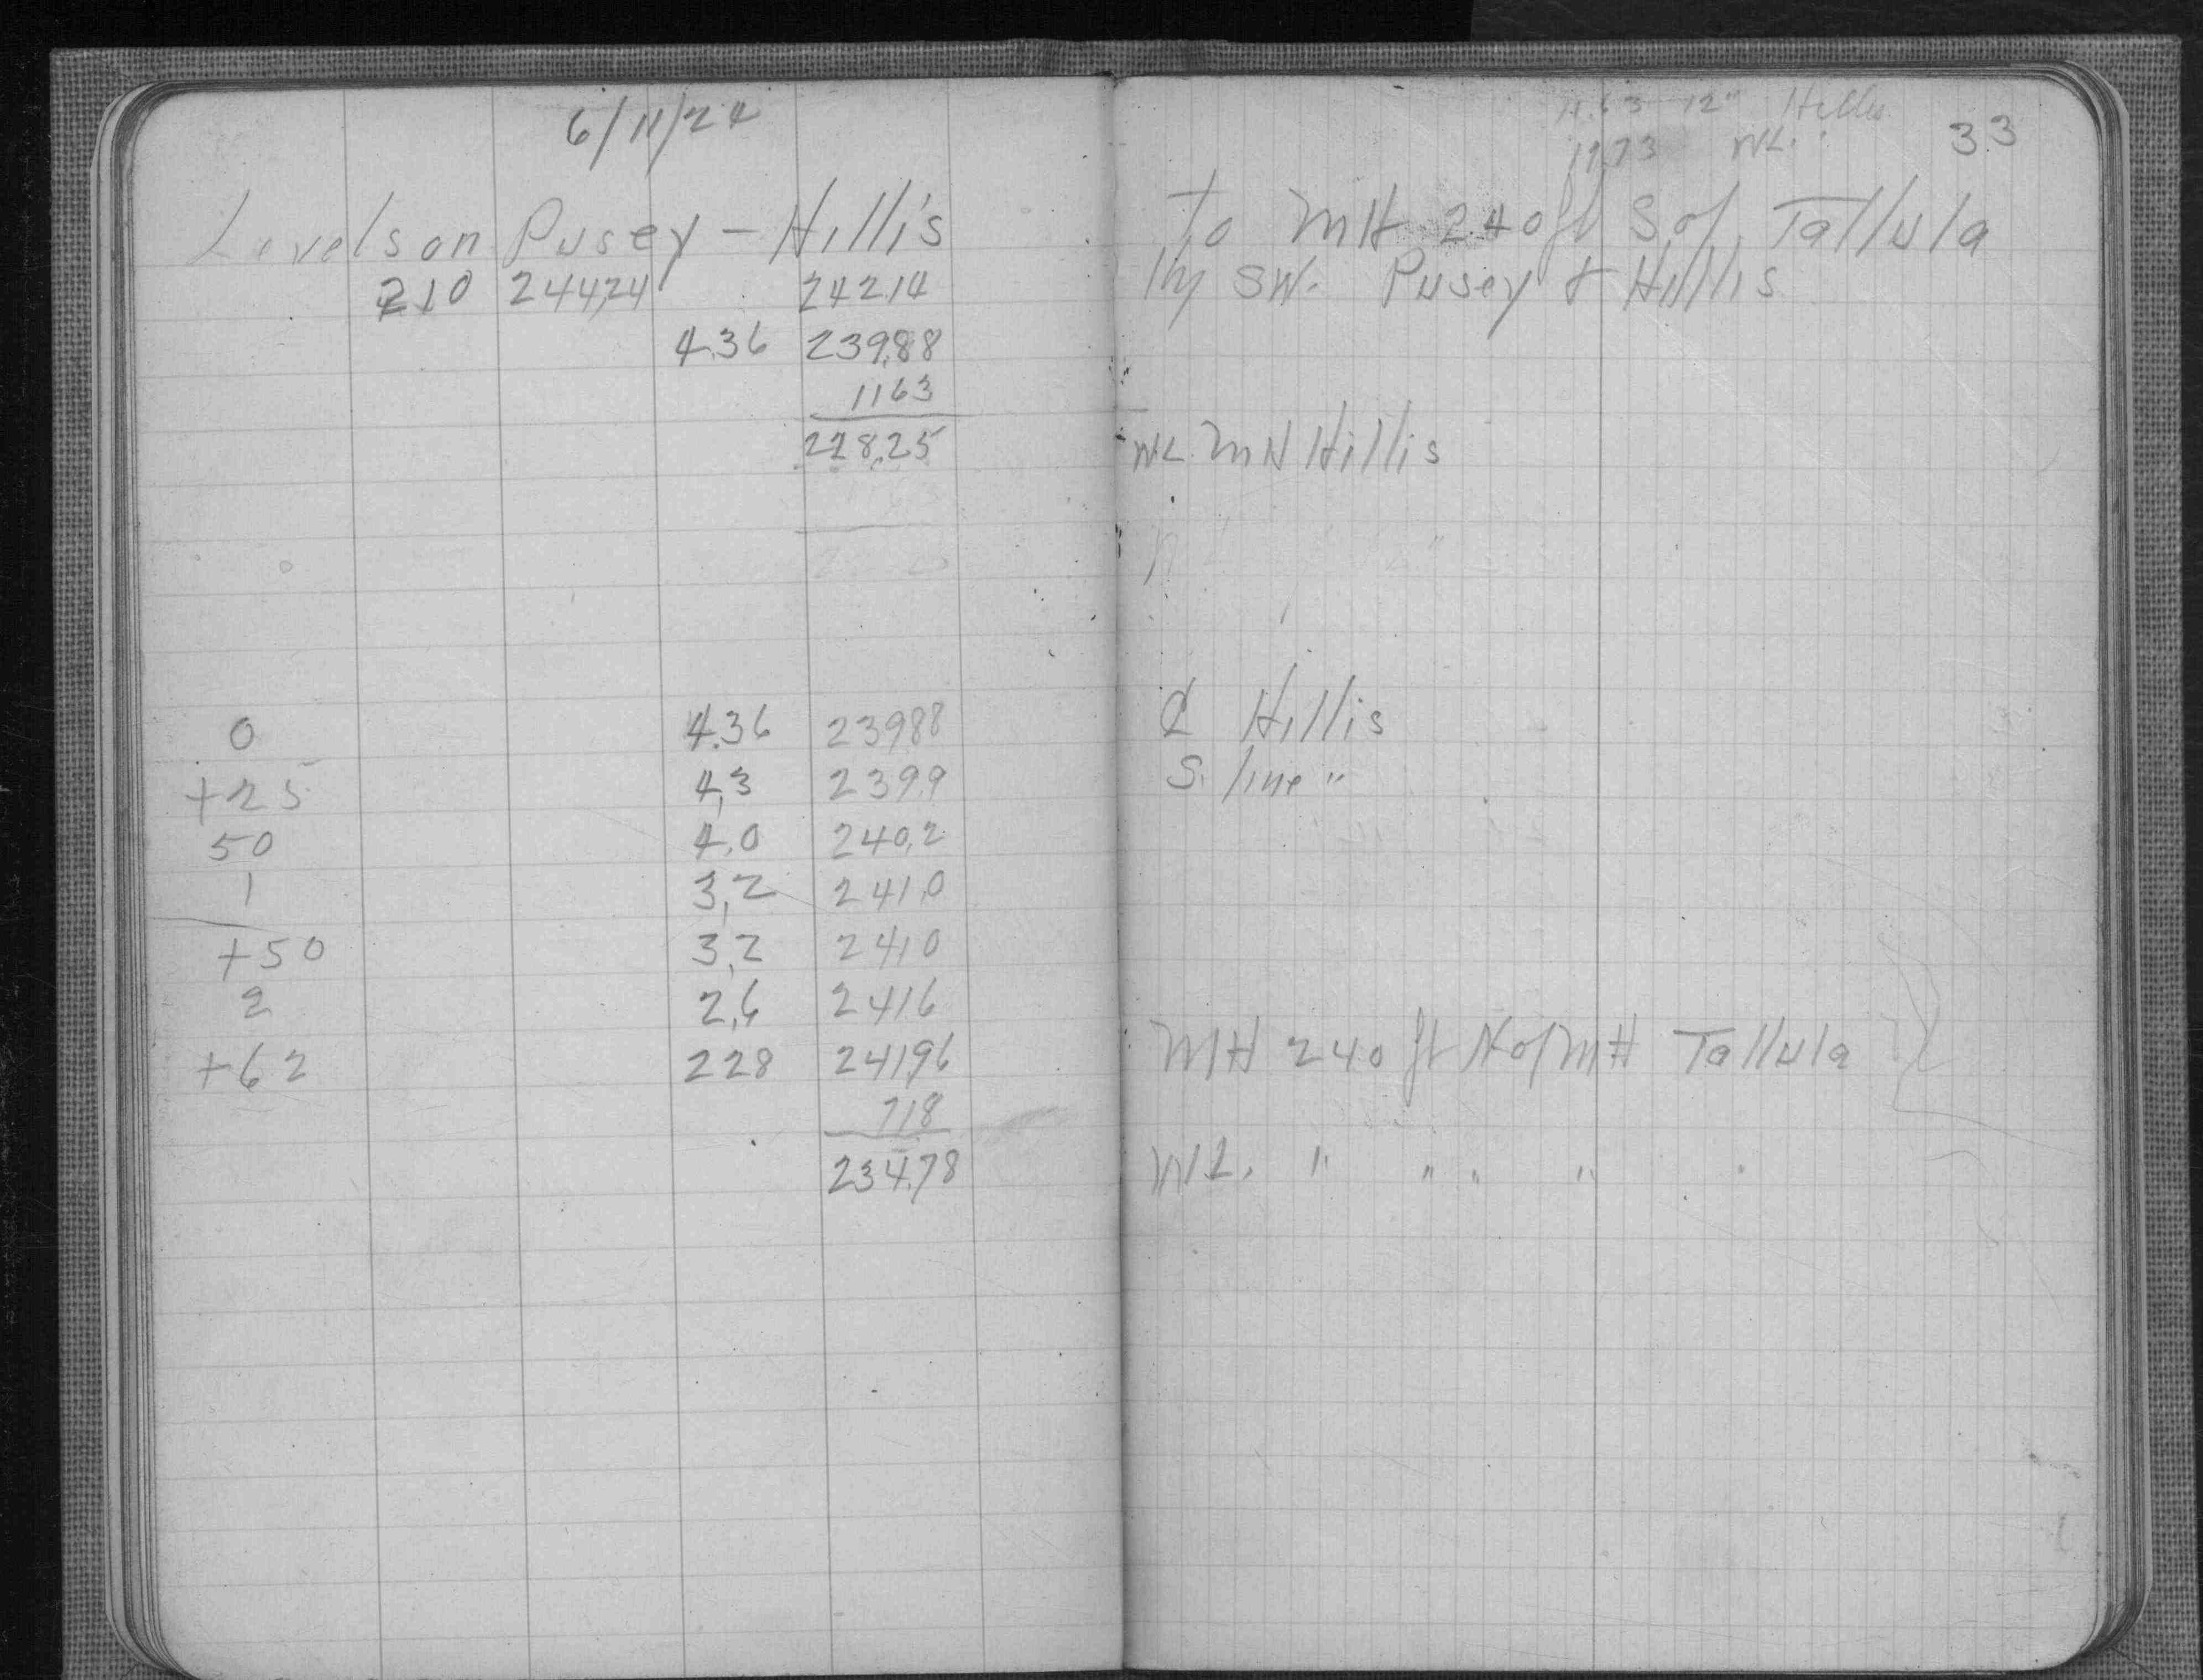 6/11/24
11.63 12" Hillis
11.73 WL. "
33
Levels on Pusey - Hillis to MH 240 ft S of Tallula
2.10 244.24 242.14 Hy SW. Pusey & Hillis
4.36 239.88
11.63
228.25 WL. MH Hillis
0 4.36 239.88 ℄ Hillis
+25 4.3 239.9 S. line "
50 4.0 240.2
1 3.2 241.0
+50 3.2 241.0
2 2.6 241.6
+62 2.28 241.96 MH 240 ft N of MH Tallula
7.18
234.78 WL. " " " "